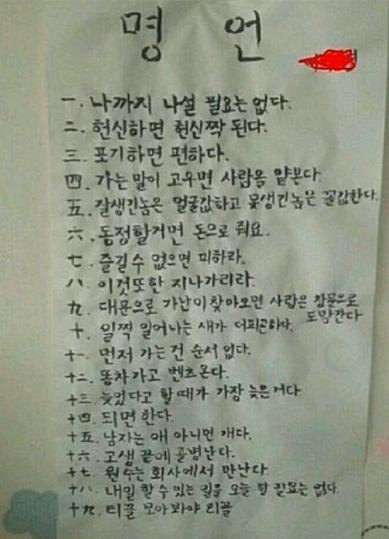 명 언
一. 나까지 나설 필요는 없다.
二. 헌신하면 헌신짝 된다.
三. 포기하면 편하다.
四. 가는 말이 고우면 사람을 얕본다.
五. 잘생긴놈은 얼굴값하고 못생긴놈은 꼴값한다.
六. 동정할거면 돈으로 줘요.
七. 즐길수 없으면 피하라.
八. 이것또한 지나가리라.
九. 대문으로 가난이 찾아오면 사람은 창문으로
도망간다
十. 일찍 일어나는 새가 더피곤하다.
十一. 먼저 가는건 순서 없다.
十二. 똥차가고 벤츠온다.
十三. 늦었다고 할때가 가장 늦은거다
十四. 되면 한다.
十五. 남자는 애 아니면 개다.
十六. 고생 끝에 골병난다.
十七. 원수는 회사에서 만난다.
十八. 내일 할 수 있는 일을 오늘 할 필요는 없다.
十九. 티끌 모아봐야 티끌